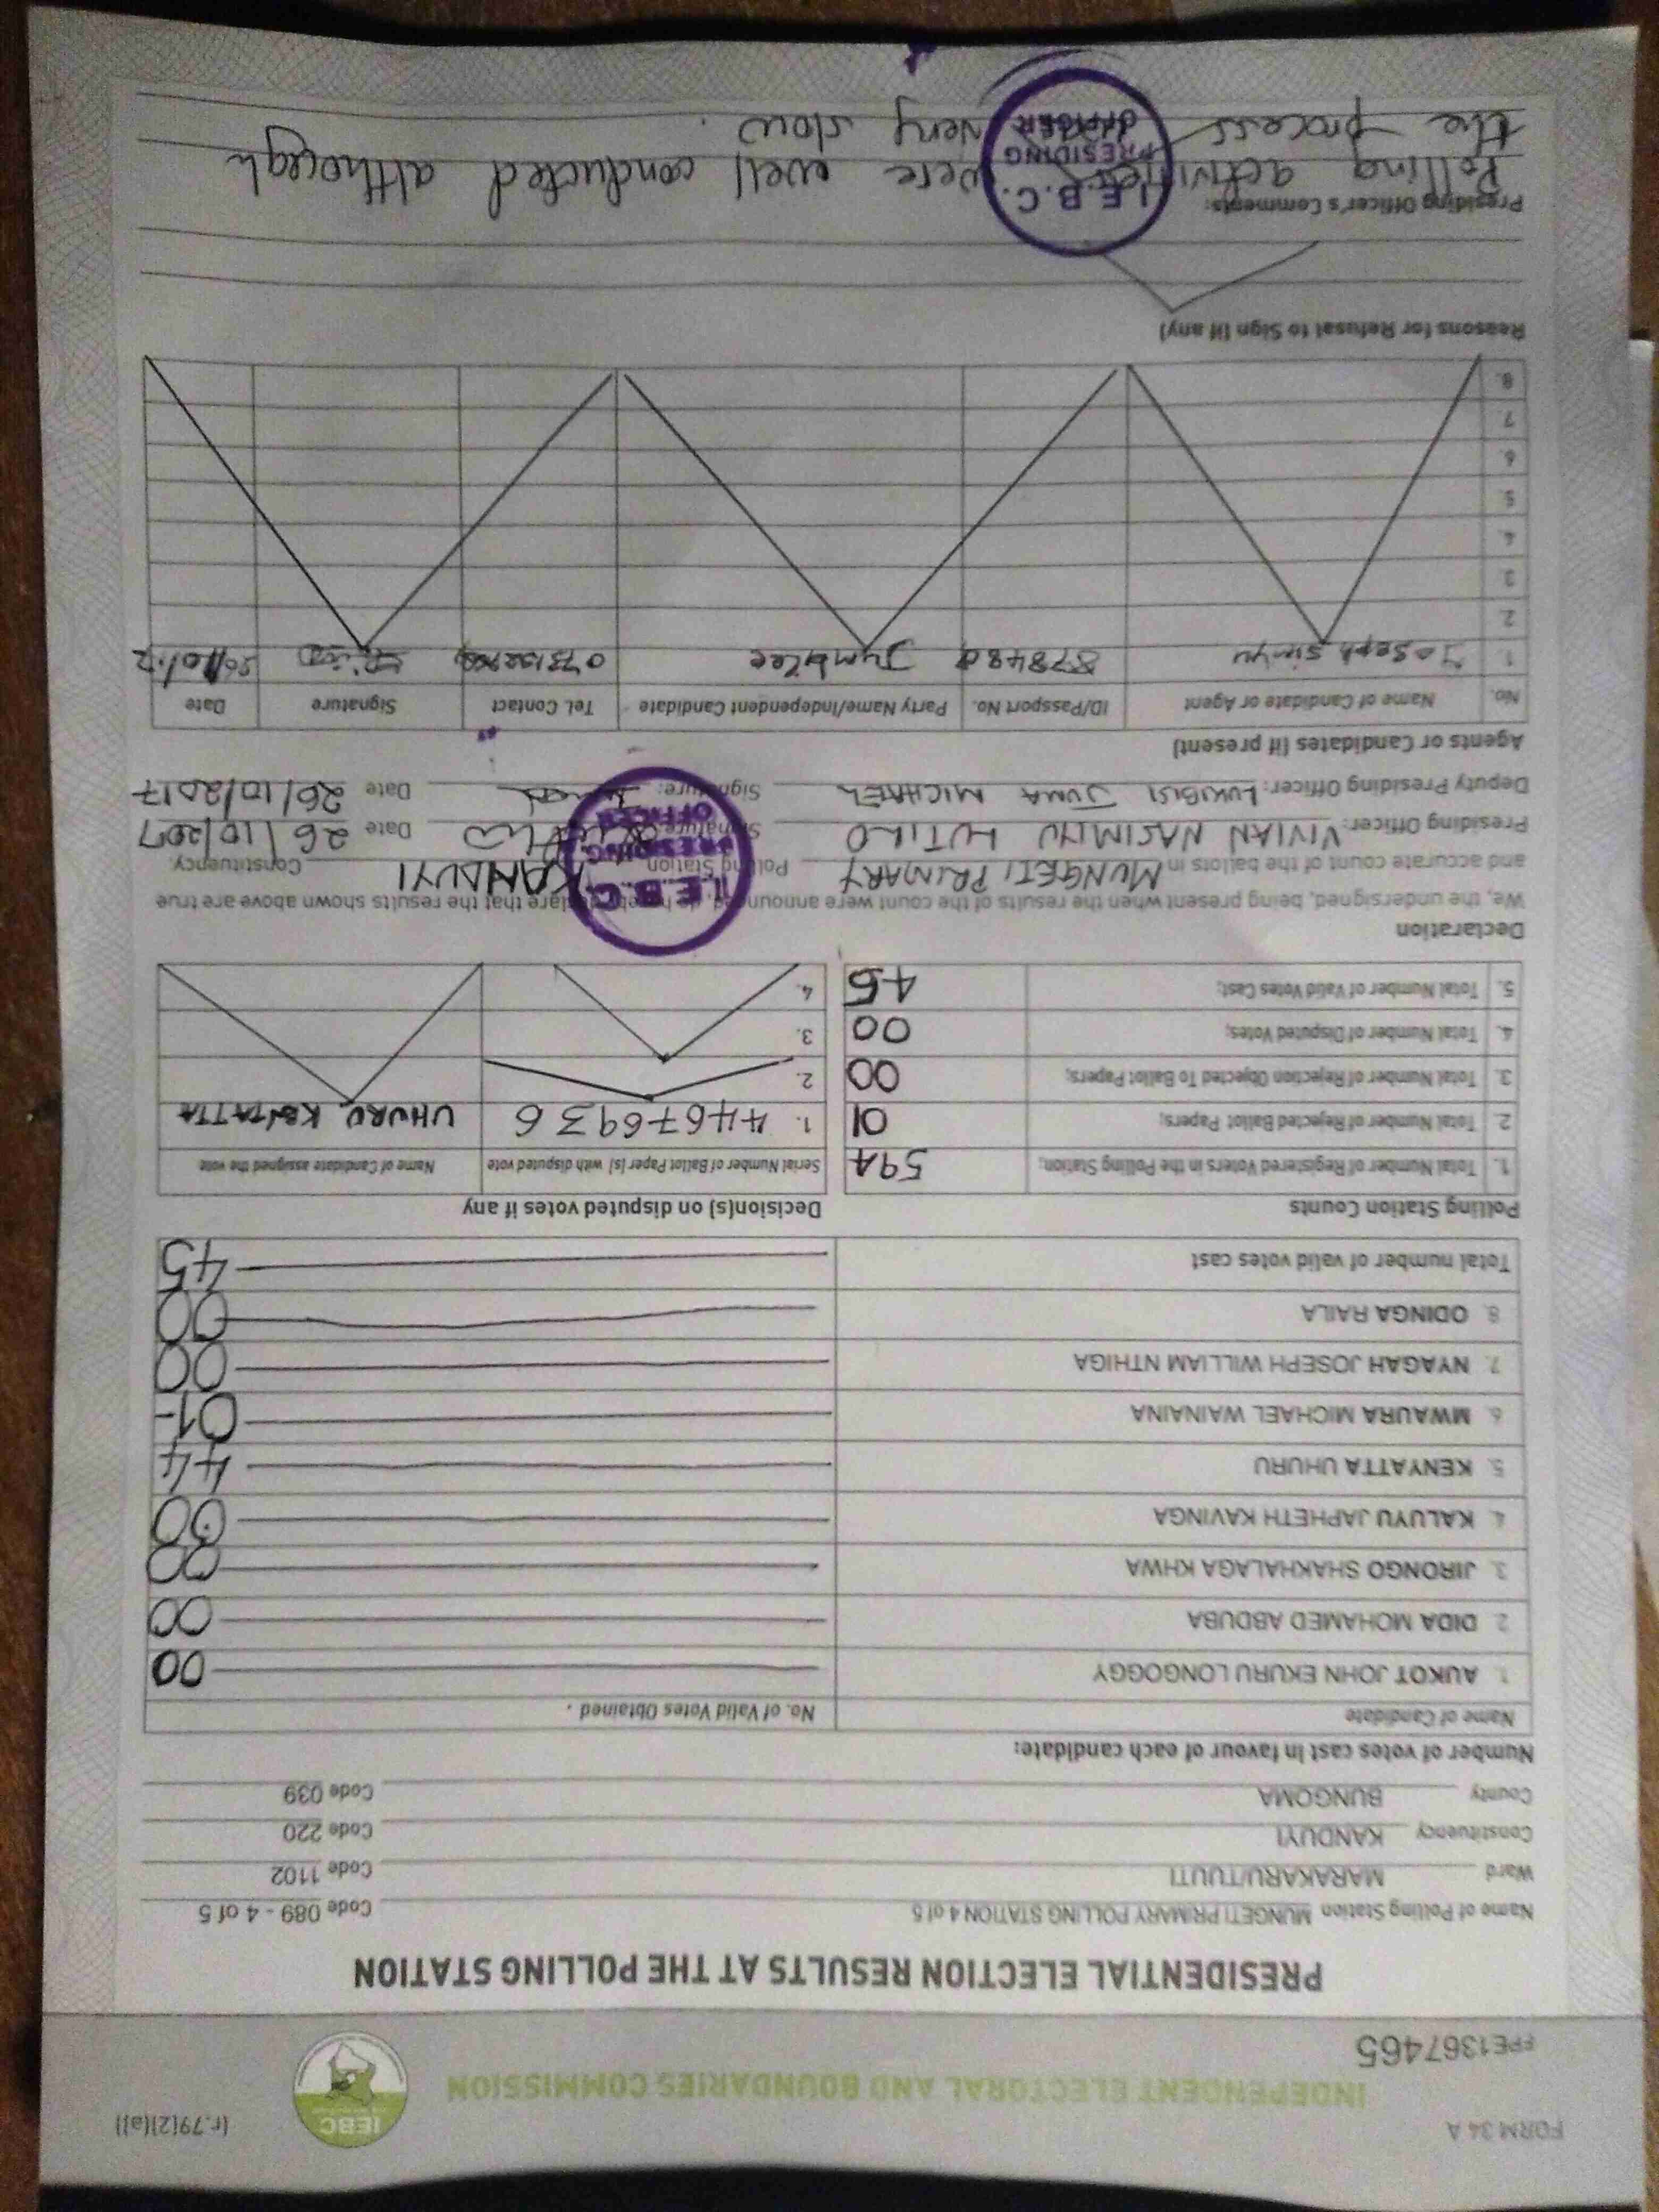 FORM 34 A
(r.79(2)(a))
IEBC
INDEPENDENT ELECTORAL AND BOUNDARIES COMMISSION
PPE1367465
PRESIDENTIAL ELECTION RESULTS AT THE POLLING STATION
Name of Polling Station MUNGETI PRIMARY POLLING STATION 4 of 5 Code 089 - 4 of 5
Ward MARAKARU/TUUTI Code 1102
Constituency KANDUYI Code 220
County BUNGOMA Code 039
Number of votes cast in favour of each candidate:
Name of Candidate No. of Valid Votes Obtained
1. AUKOT JOHN EKURU LONGOGGY 00
2. DIDA MOHAMED ABDUBA 00
3. JIRONGO SHAKHALAGA KHWA 00
4. KALUYU JAPHETH KAVINGA 00
5. KENYATTA UHURU 44
6. MWAURA MICHAEL WAINAINA 01-
7. NYAGAH JOSEPH WILLIAM NTHIGA 00
8. ODINGA RAILA 00
Total number of valid votes cast 45
Polling Station Counts
1. Total Number of Registered Voters in the Polling Station; 594
2. Total Number of Rejected Ballot Papers; 01
3. Total Number of Rejection Objected To Ballot Papers; 00
4. Total Number of Disputed Votes; 00
5. Total Number of Valid Votes Cast; 45
Decision(s) on disputed votes if any
Serial Number of Ballot Paper (s) with disputed vote Name of Candidate assigned the vote
1. 44676936 UHURU KENYATTA
2.
3.
4.
Declaration
We, the undersigned, being present when the results of the count were announced, do hereby declare that the results shown above are true
and accurate count of the ballots in MUNGETI PRIMARY Polling Station KANDUYI Constituency.
Presiding Officer: VIVIAN NASIMIYU LUTILO Signature: Date 26/10/2017
Deputy Presiding Officer: LUKIBISI JUMA MICHAEL Signature: Date 26/10/2017
I.E.B.C.
PRESIDING
OFFICER
Agents or Candidates (if present)
No. Name of Candidate or Agent ID/Passport No. Party Name/Independent Candidate Tel. Contact Signature Date
1 Joseph Simiyu Jumbilee
2.
3
4.
5.
6
7
8.
Reasons for Refusal to Sign (if any)
Presiding Officer's Comments:
Polling activities were well conducted although
the process was very slow.
I.E.B.C.
PRESIDING
OFFICER